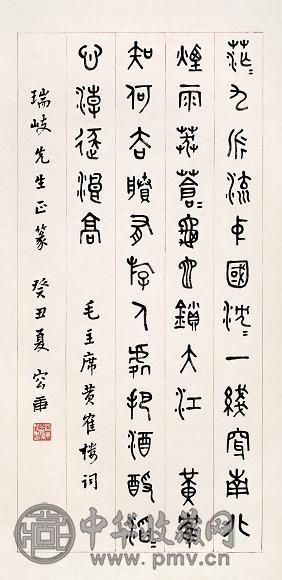 茫〻九派流中國沈〻一綫穿南北
煙雨莽蒼〻龜它鎖大江 黃隺
知何去賸有斿人處把酒酹滔〻
心淖逐浪高 毛主席黃隺樓詞
瑞岐先生正篆 癸丑夏 容庚
中华收藏网
www.pmv.cn